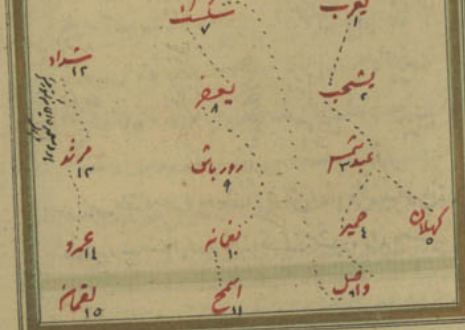 يعرب
١
يشجب
٢
عبدشمس
٣
حمير
٤
كهلان
٥
واصل
٦
سكسك
٧
يعفر
٨
٩
نعمانه
١٠
اسمح
١١
شداد
١٢
مرثد
١٣
عمرو
١٤
لقمانه
١٥